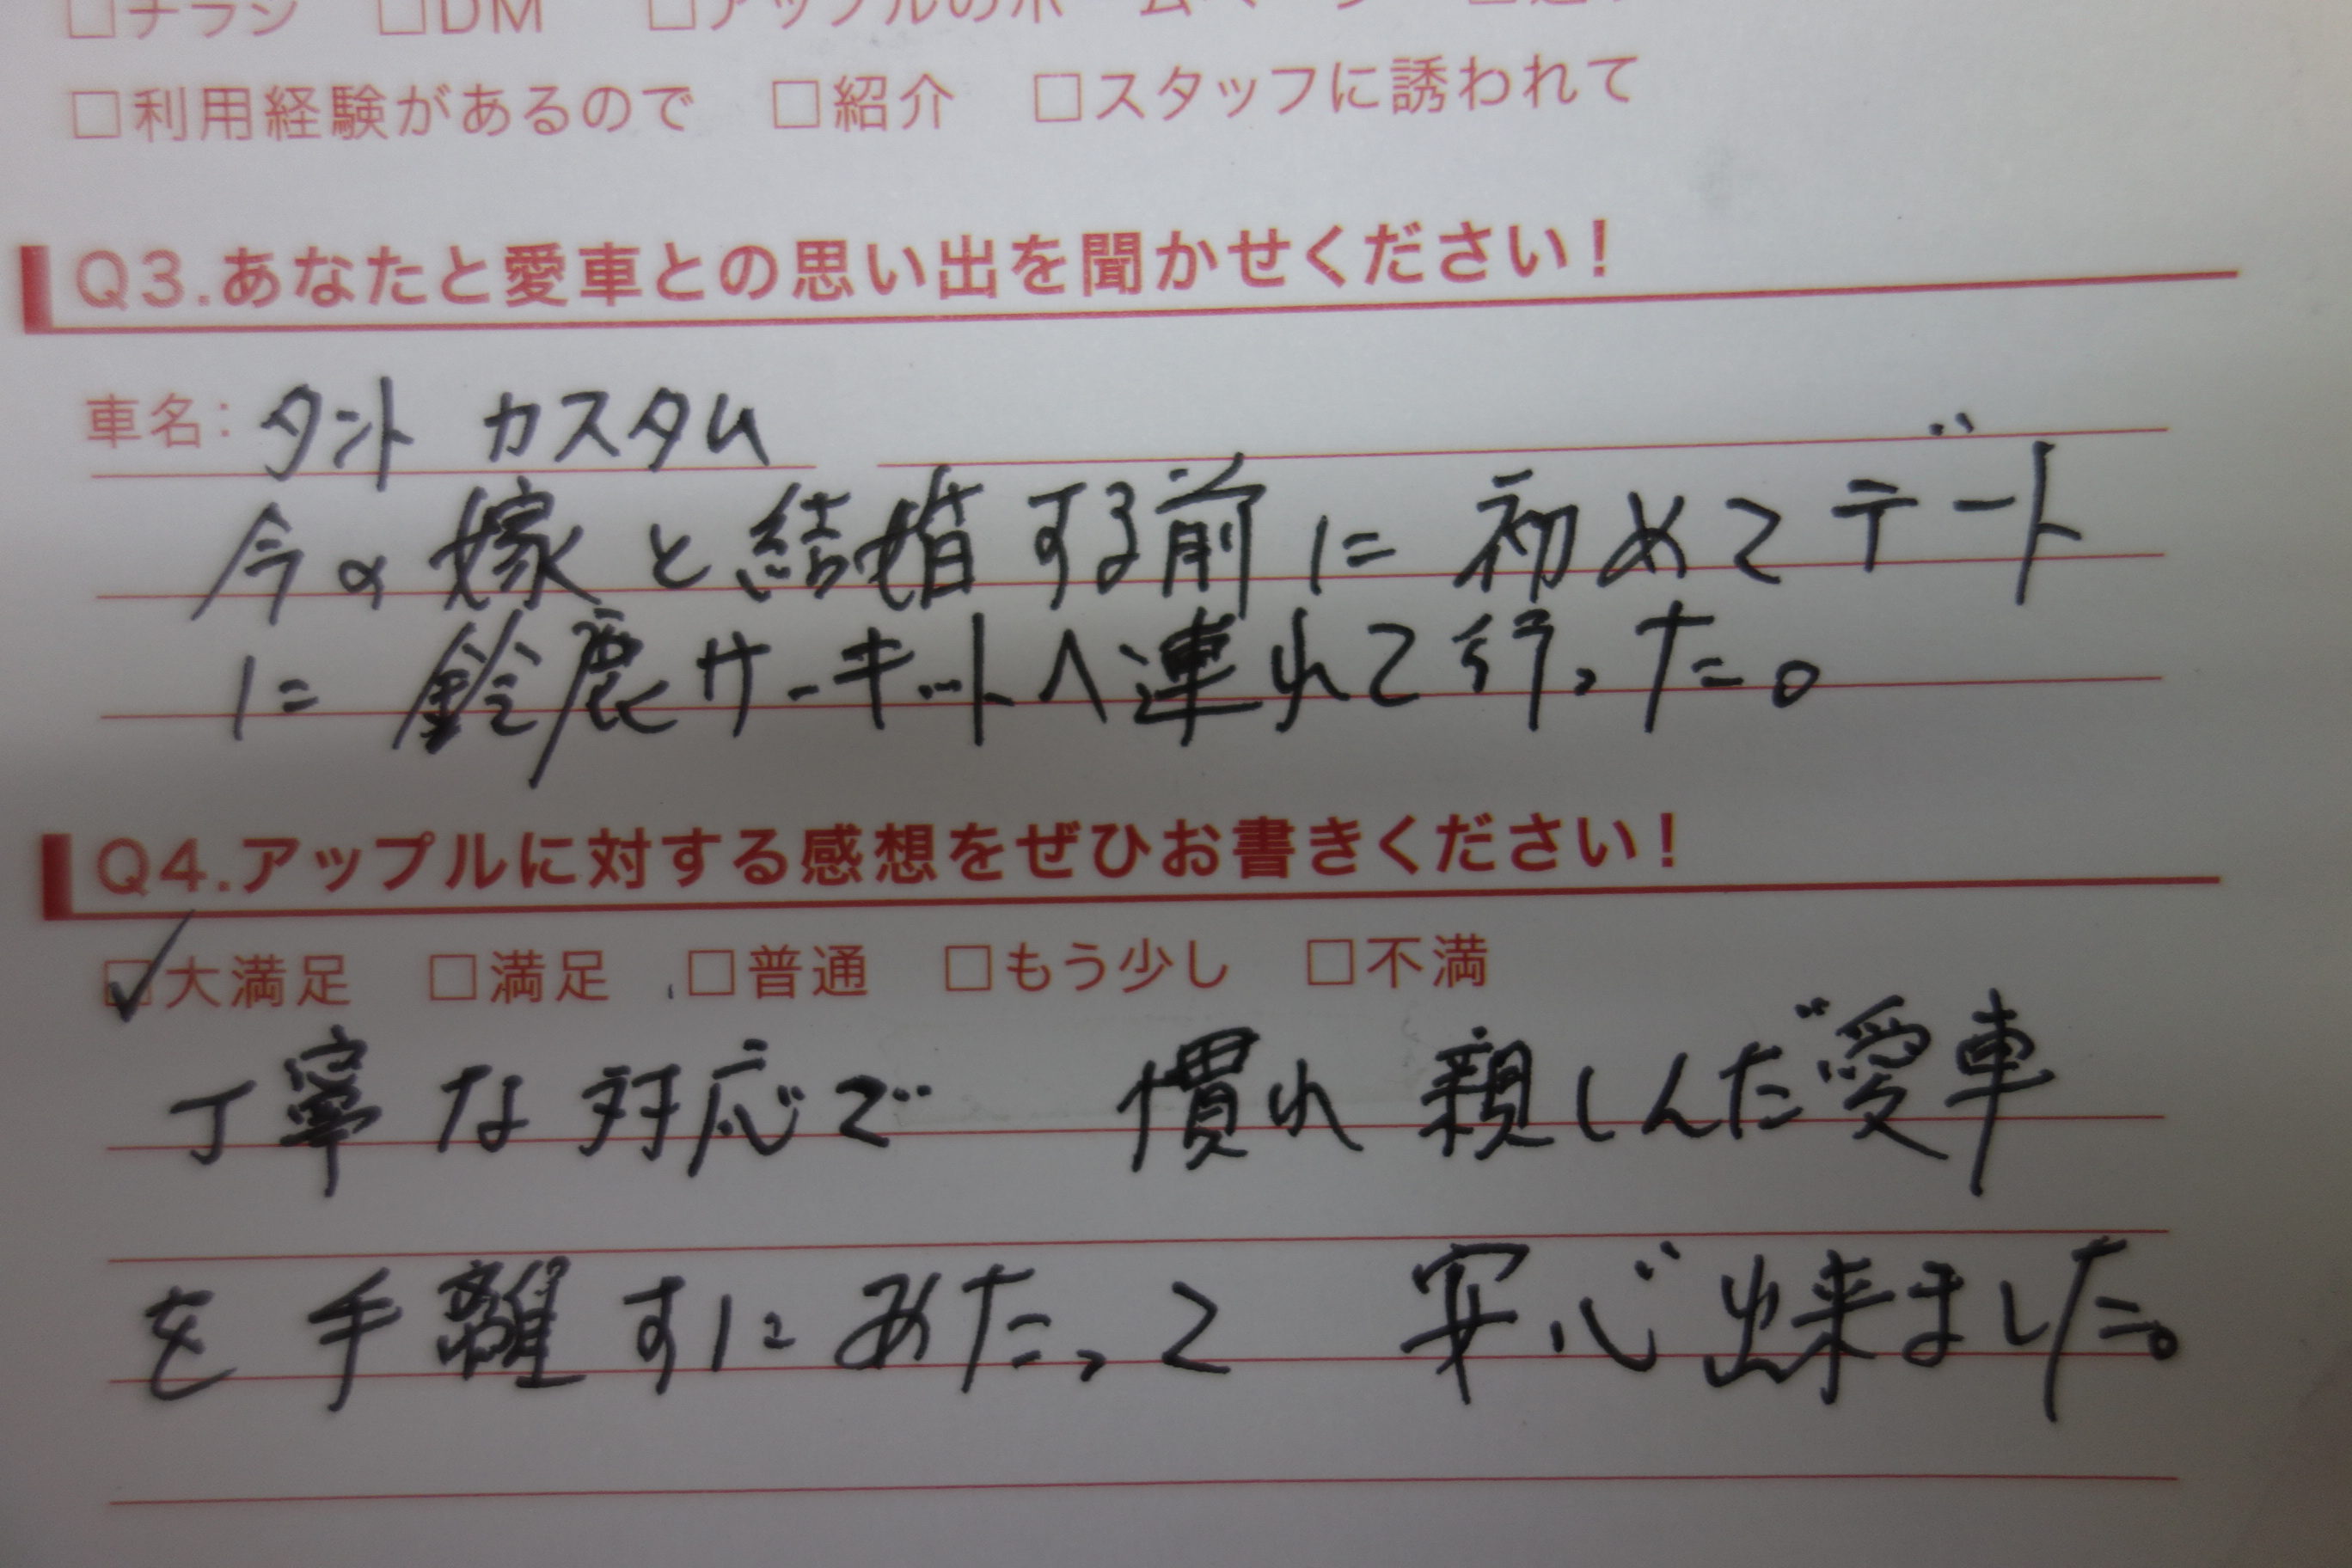 □チラシ □DM □アップルのホームページ
□利用経験があるので □紹介 □スタッフに誘われて
Q3.あなたと愛車との思い出を聞かせください!
車名: タント カスタム
今の嫁と結婚する前に初めてデート
に鈴鹿サーキットへ連れて行った。
Q4.アップルに対する感想をぜひお書きください!
☑大満足 □満足 □普通 □もう少し □不満
丁寧な対応で 慣れ親しんだ愛車
を手離すにあたって 安心出来ました。